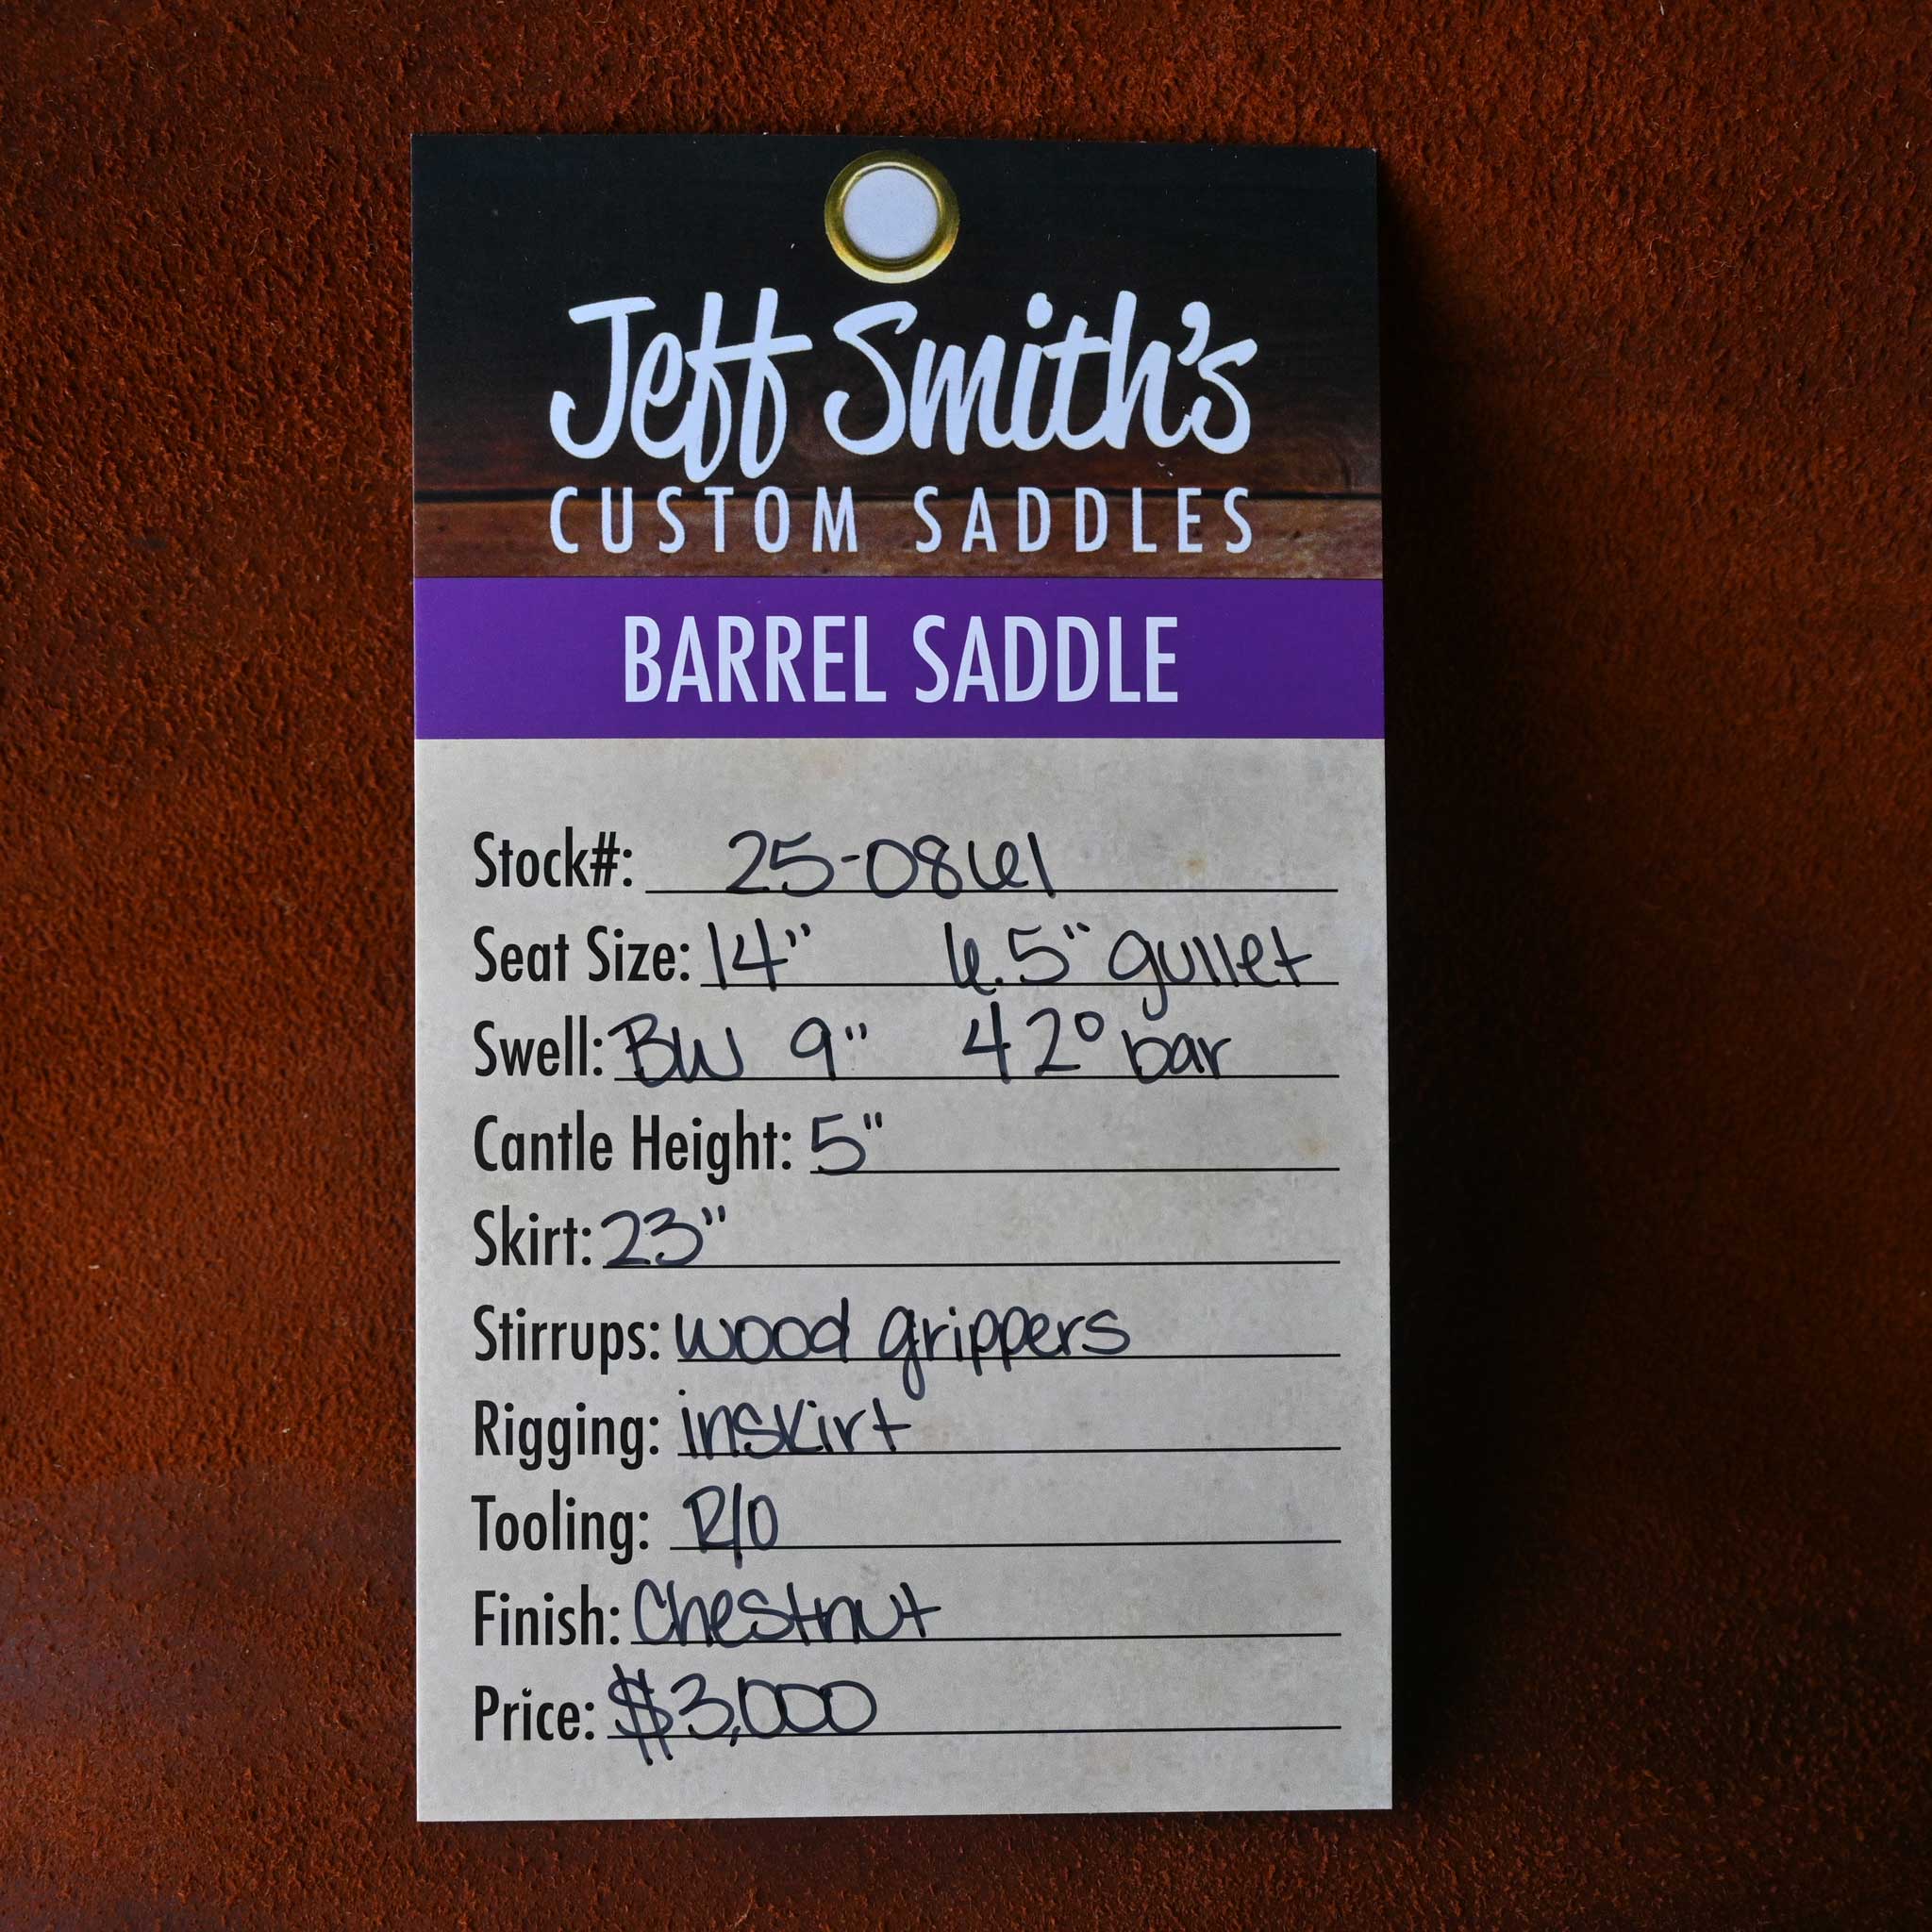 Jeff Smith's
CUSTOM SADDLES
BARREL SADDLE
Stock#: 25-0861
Seat Size: 14" 6.5" gullet
Swell: BW 9" 42° bar
Cantle Height: 5"
Skirt: 23"
Stirrups: wood grippers
Rigging: inskirt
Tooling: R/O
Finish: Chestnut
Price: $3,000